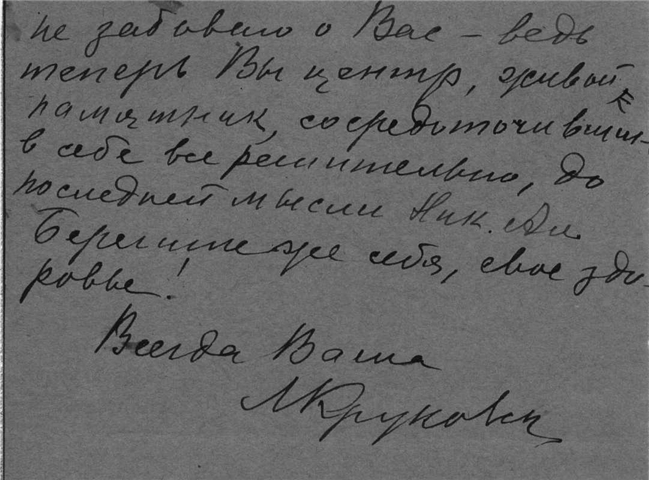 не забываю о Вас – ведь
теперь Вы центр, живой
памятник, сосредоточивший
в себе все решительно, до
последней мысли Ник. Ал.
Берегите же себя, свое здо-
ровье!
Всегда Ваша